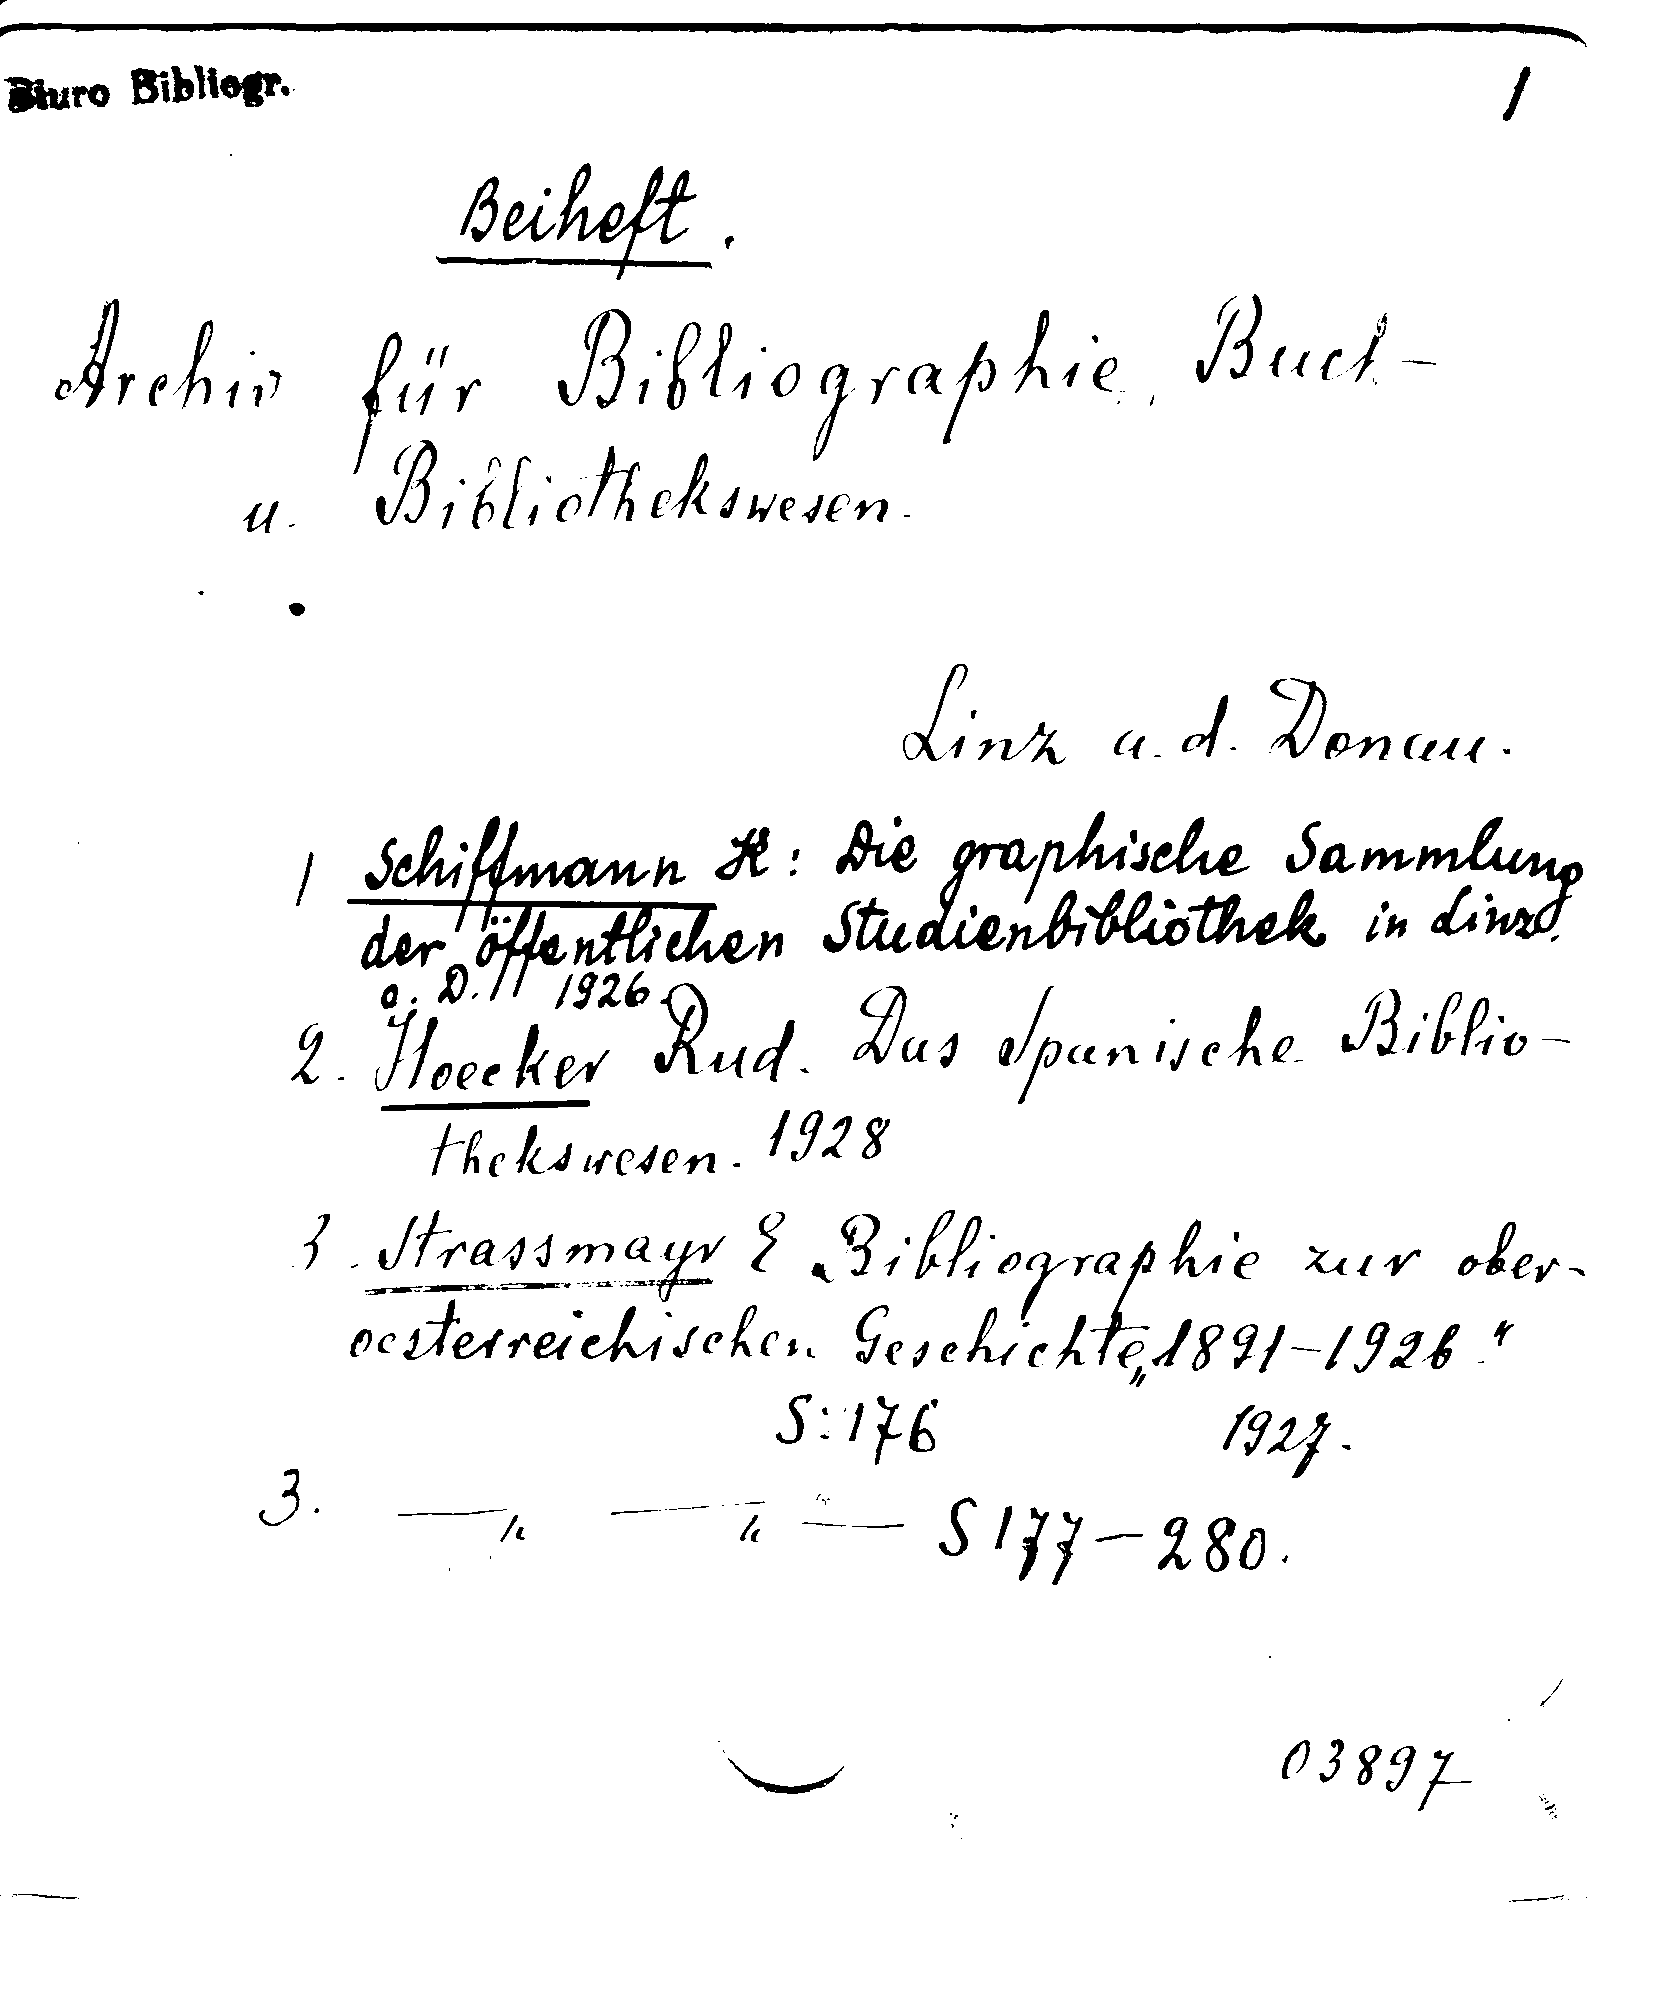 Biuro Bibliogr.
1
Beiheft.
Archiv für Bibliographie, Buch-
u. Bibliothekswesen.
Linz a. d. Donau.
1 Schiffmann K: Die graphische Sammlung
der öffentlichen Studienbibliothek in Linz
a. D. 1926.
2. Hoecker Rud. Das Spanische Biblio-
thekswesen. 1928
3. Strassmayr E. Bibliographie zur ober-
oesterreichischen Geschichte „1891–1926."
S: 176 1927.
3. —„ —„— S 177–280.
03897